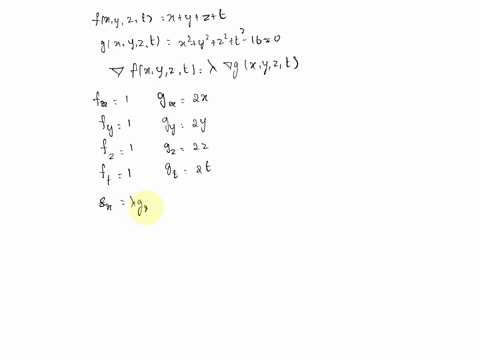 f(x,y,z,t) = x+y+z+t
g(x,y,z,t) = x²+y²+z²+t²-16=0
∇ f(x,y,z,t) = λ ∇g(x,y,z,t)
fx = 1 gx = 2x
fy = 1 gy = 2y
fz = 1 gz = 2z
ft = 1 gt = 2t
fx = λgx